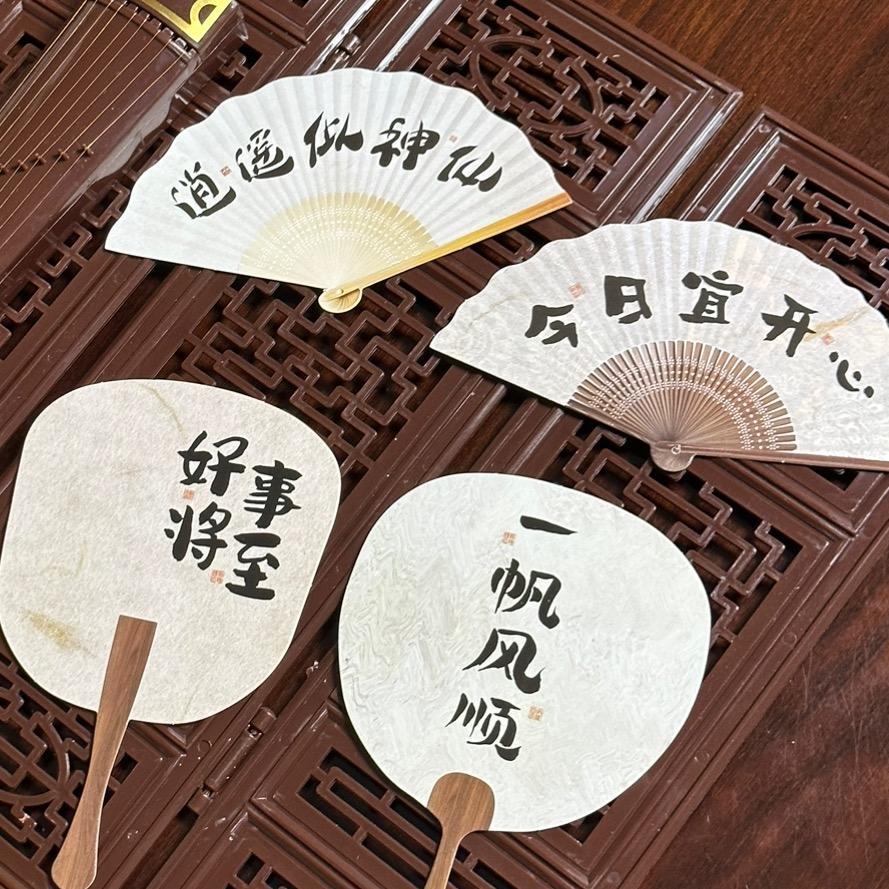 逍遥似神仙
今日宜开心
好事
将至
一帆风顺